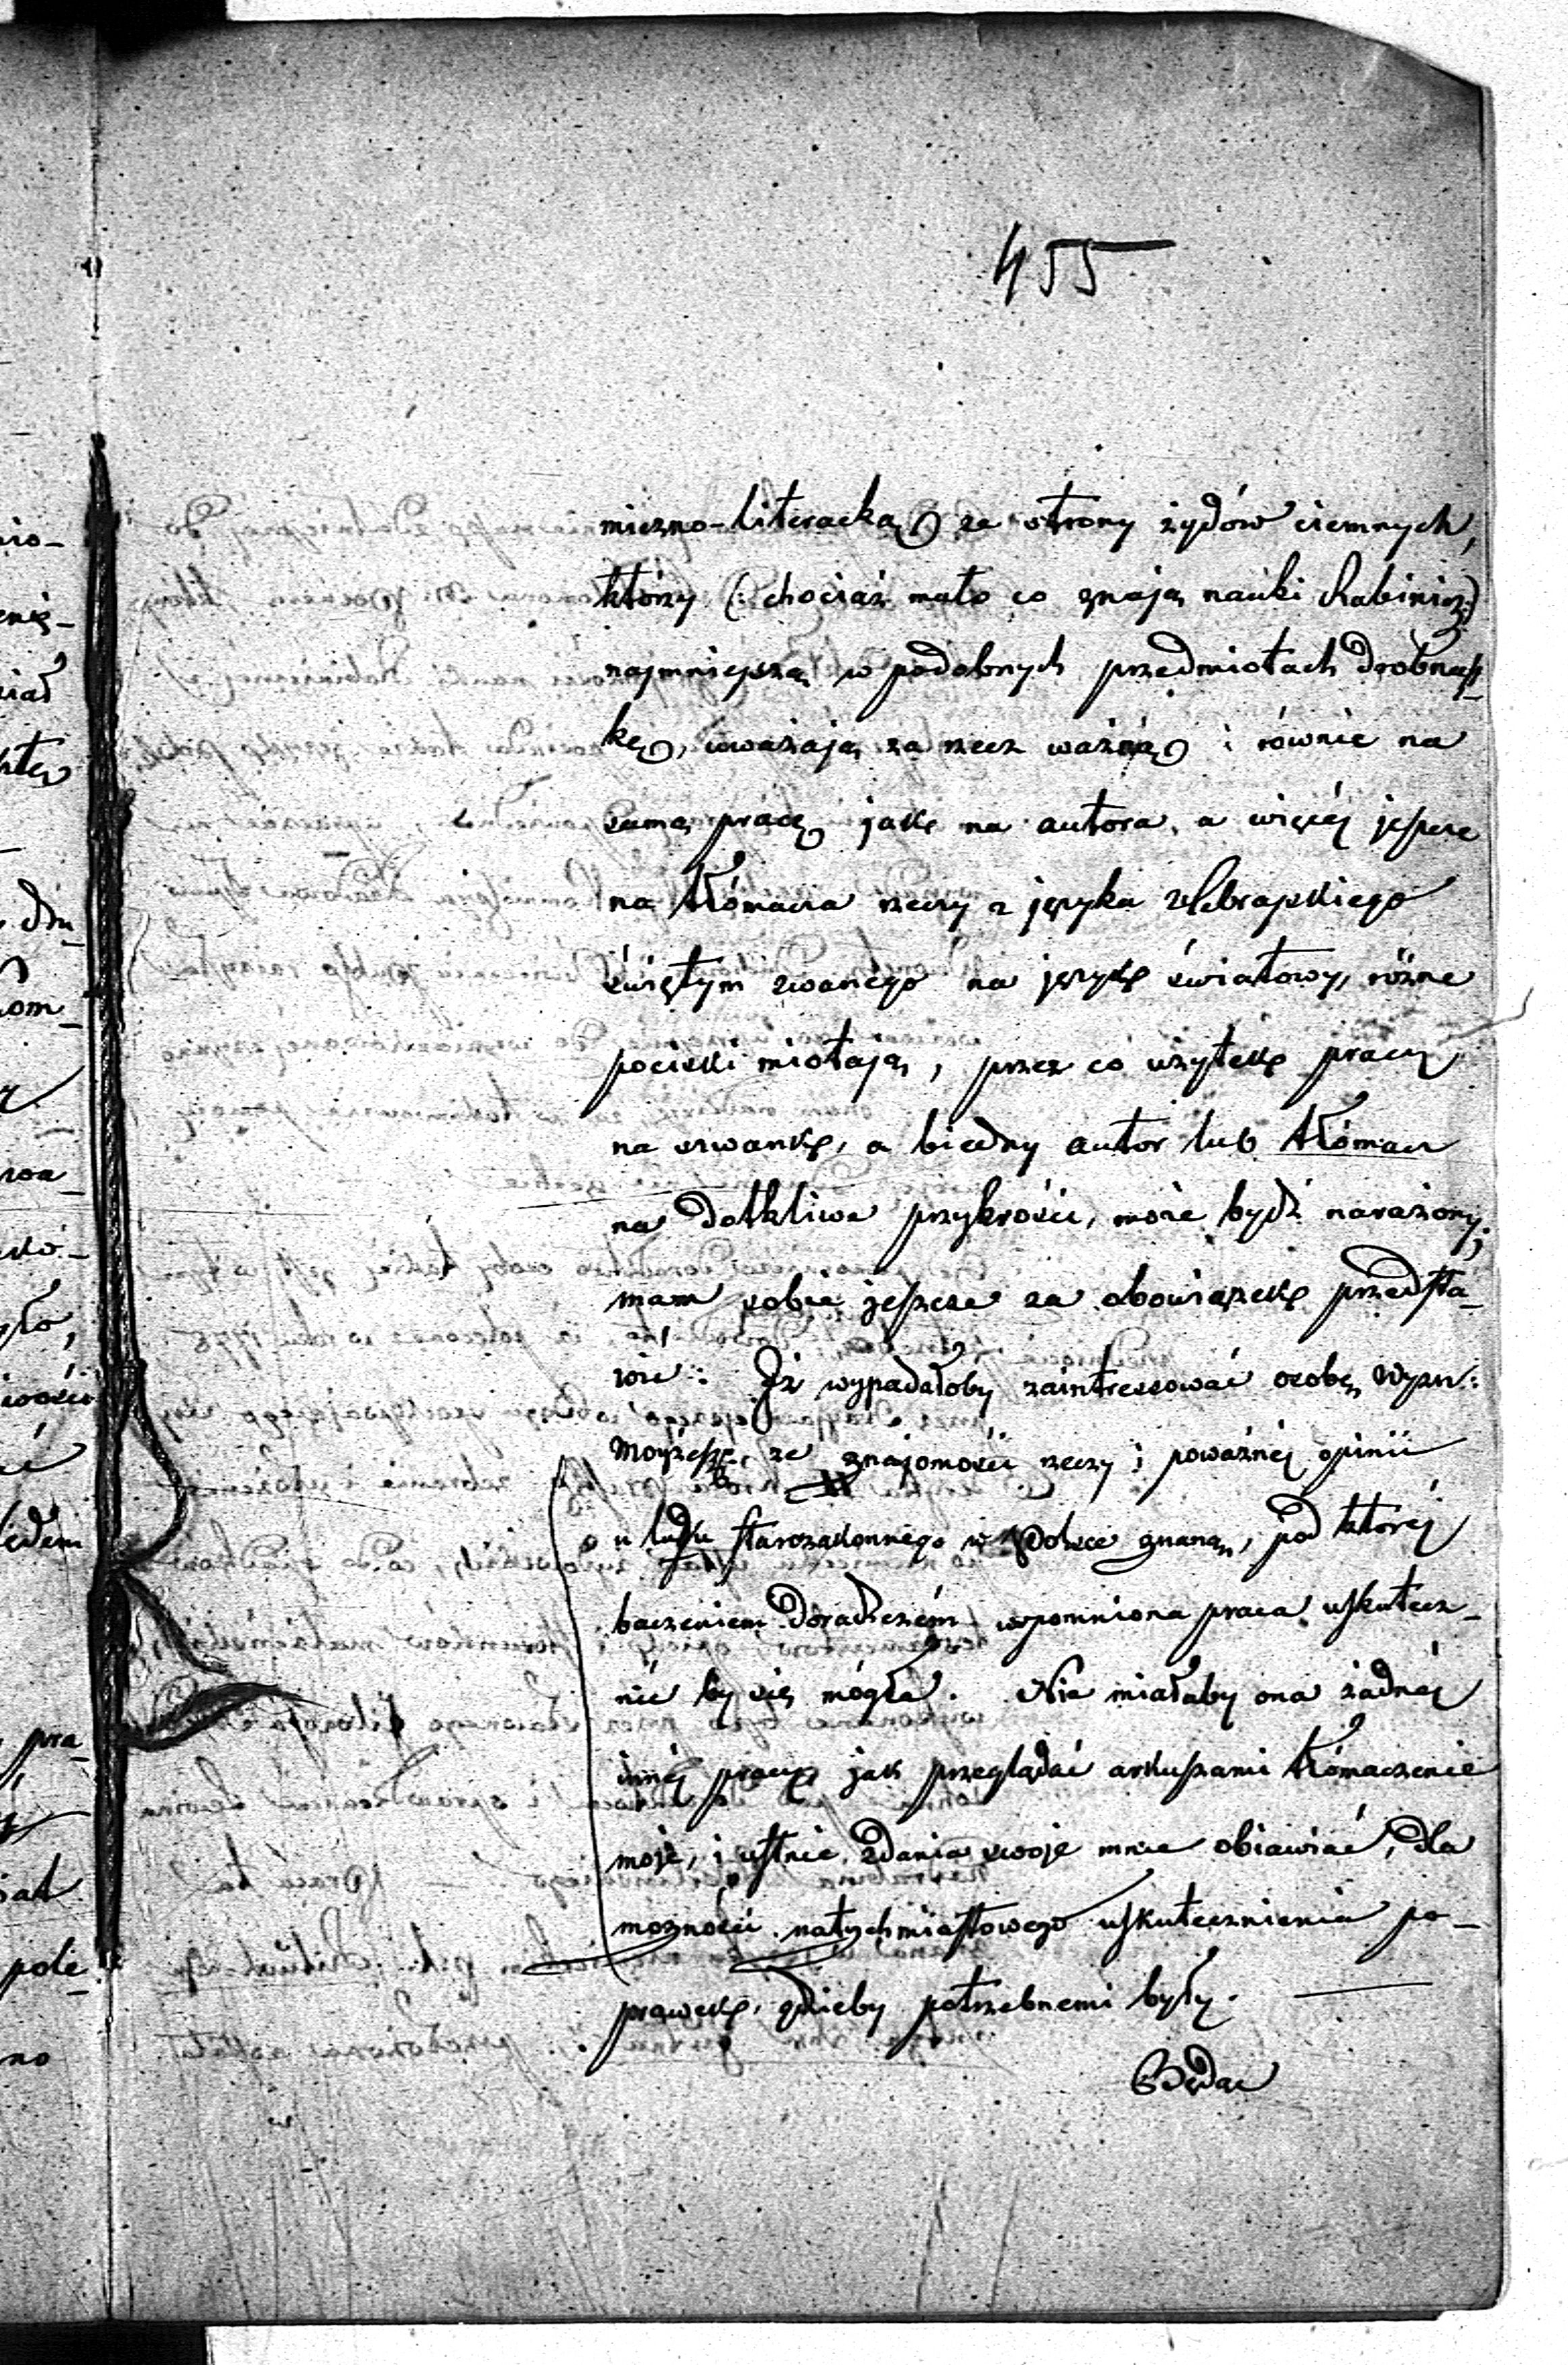 455
miczno-literacką ze strony żydów ciemnych,
którzy (: chociaż mało co znają nauki Rabinicz:)
najmniejszą w podobnych przedmiotach drobnast-
kę, uważają za rzecz ważną i równie na
samą pracę jak na autora, a więcéj jeszcze
na tłómacza rzeczy z języka Hebrajskiego
świętym zwanego na język światowy, różne
pociski miotają, przez co użytek pracy
na szwank, a biedny autor lub tłómacz
na dotkliwe przykrości, może bydź narażony;
mam sobie jeszcze za obowiązek przedsta-
wić: Iż wypadałoby zaintressować osobę wyzn:
Mojżesz. ze znajomości rzeczy i poważnéj opinii
u ludu starozakonnego w Polsce znaną, pod któréj
baczeniem doradczém wspomniona praca uskutecz-
nić by się mógła. Nie miałaby ona żadnéj
innéj pracy jak przeglądać arkuszami tłómaczenie
moje, i ustnie zdania swoje mnie obiawiać, dla
możności natychmiastowego uskutecznienia po-
prawek, gdzieby potrzebnemi były.
Będąc